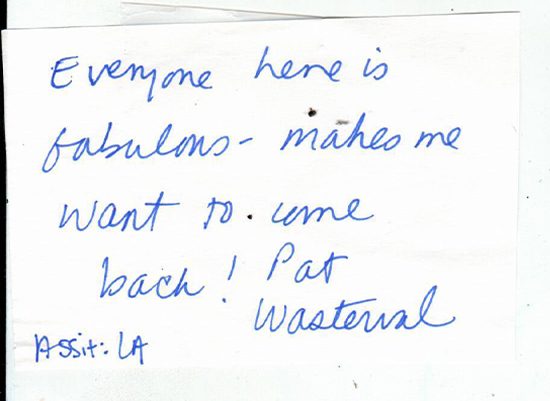 Everyone here is
fabulous - makes me
want to come
back! Pat
Wasterval
Assit: LA